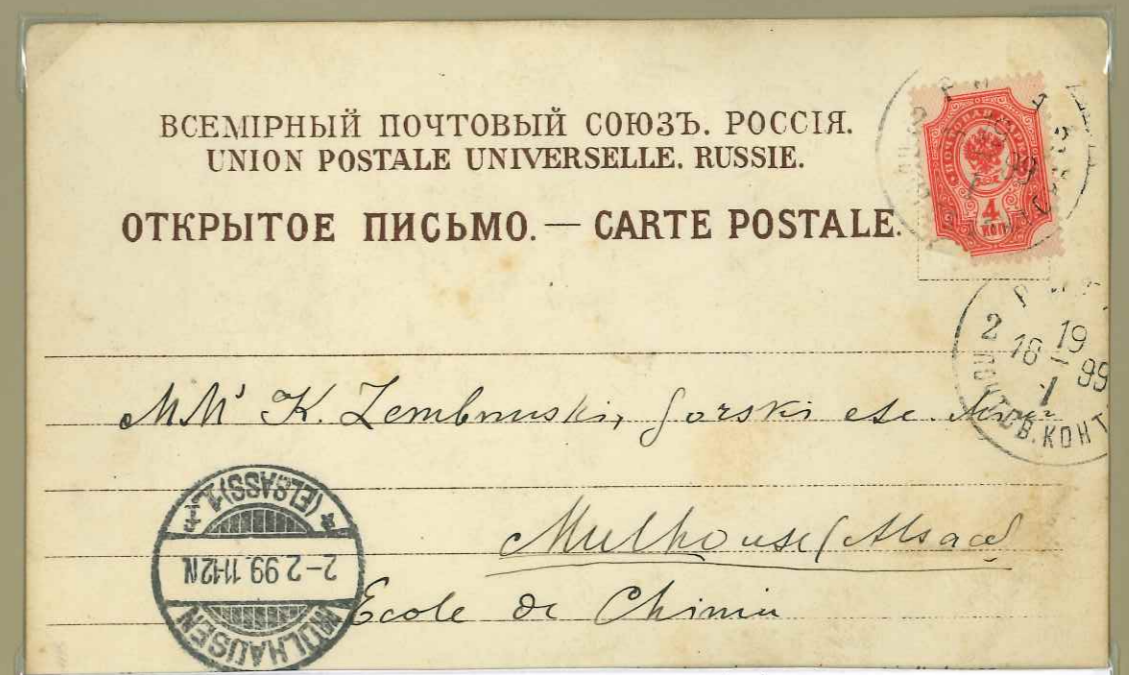 ВСЕМІРНЫЙ ПОЧТОВЫЙ СОЮЗЪ. РОССІЯ.
UNION POSTALE UNIVERSELLE. RUSSIE.
ОТКРЫТОЕ ПИСЬМО. — CARTE POSTALE.
ПОЧТОВАЯ МАРКА
4
КОП
99
2
19
18 I 99
1
ПОЧТОВ. КОНТ
MM' K. Zembruski, Gorski etc.
Mulhouse (Alsace)
Ecole de Chimie
MÜLHAUSEN
2-2.99.11-12N.
(ELSASS) 1.